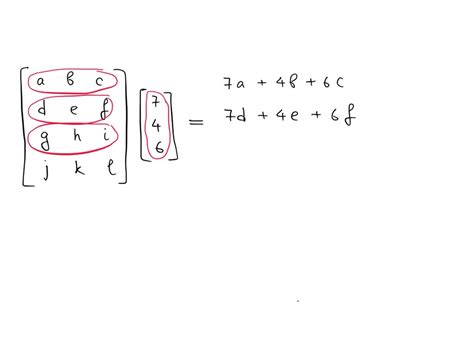 a b c
d e f
g h i
j k l
7
4
6
=
7a + 4b + 6c
7d + 4e + 6f